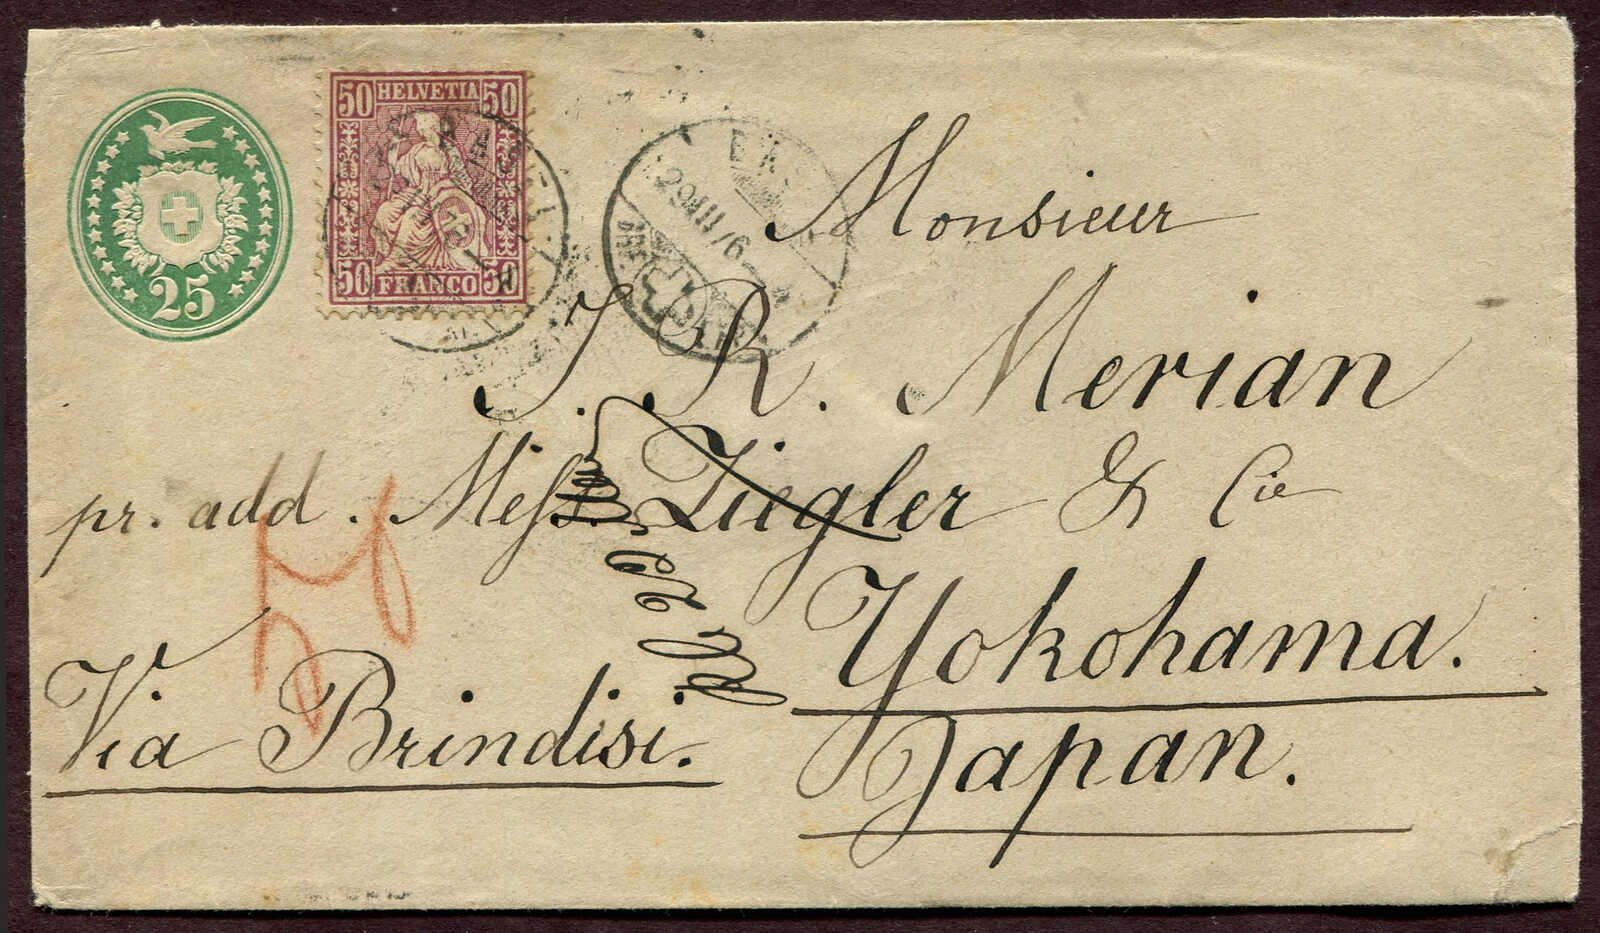 50 HELVETIA 50
50 FRANCO 50
25
BAS
Monsieur
J. R. Merian
pr. add. Mess. Ziegler & Cie
Yokohama.
Japan.
Via Brindisi.